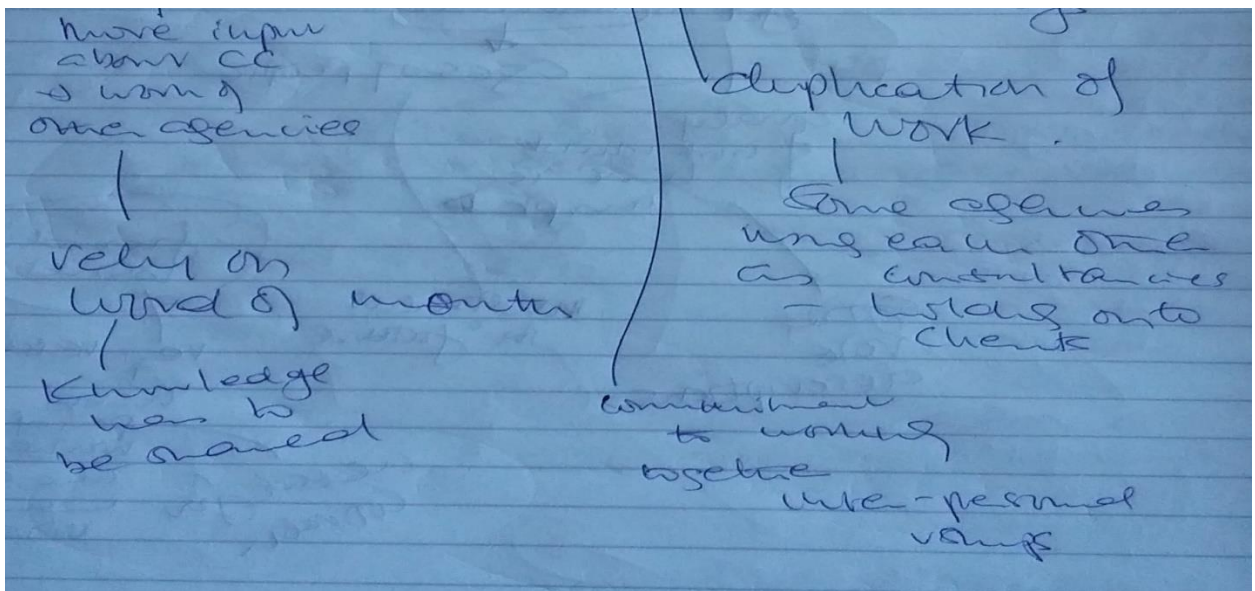 more input
about CC
→ work of
other agencies
rely on
word of mouth
Knowledge
has to
be shared
duplication of
work.
Some agencies
using each other
as consultancies
- holding onto
clients
commitment
to working
together
inter-personal